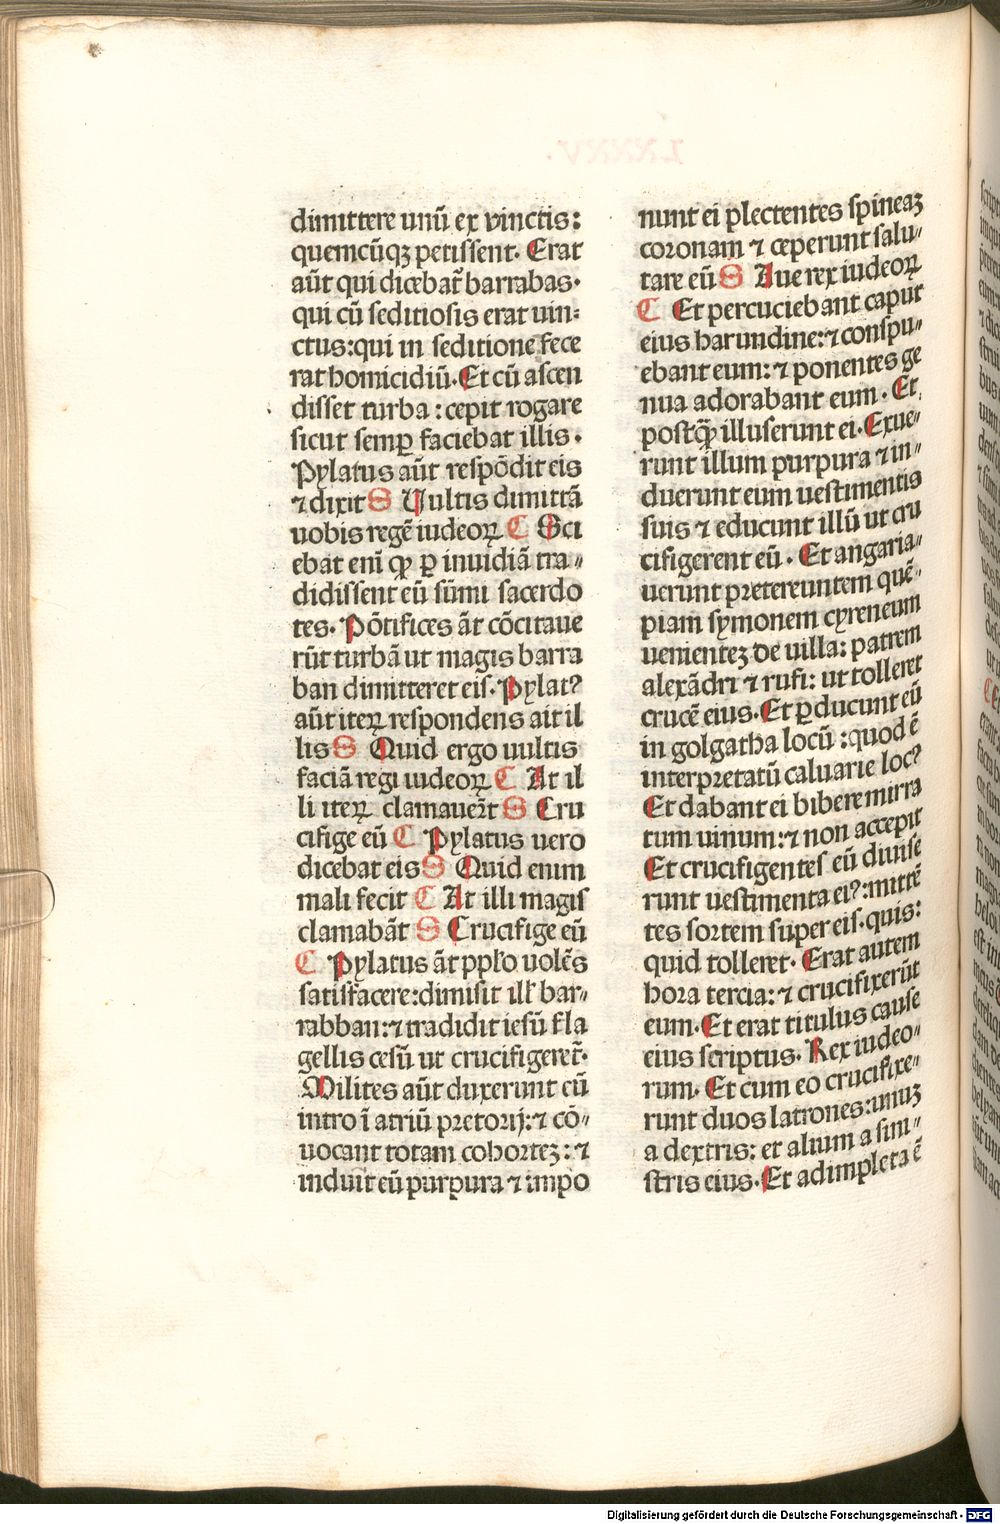 dimittere unū ex vinctis:
quemcūqꝫ petissent. Erat
aūt qui dicebat̄ barrabas.
qui cū seditiosis erat uin⸗
ctus: qui in seditione fece
rat homicidiū. Et cū ascen
disset turba: cepit rogare
sicut semꝑ faciebat illis.
Pylatus aūt respōdit eis
⁊ dixit S Uultis dimittā
uobis regē iudeoꝝ C Sci
ebat eni ꝙ ꝑ inuidiā tra⸗
didissent eū sūmi sacerdo
tes. Pōtifices āt cōcitaue
rūt turbā ut magis barra
ban dimitteret eis. Pylatꝰ
aūt iteꝝ respondens ait il
lis S Quid ergo uultis
faciā regi iudeoꝝ C At il
li iteꝝ clamauer̄t S Cru
cifige eū C Pylatus uero
dicebat eis S Quid enim
mali fecit C At illi magis
clamabāt S Crucifige eū
C Pylatus āt ppl̄o uolēs
satisfacere: dimisit ill̄ bar⸗
rabban: ⁊ tradidit iesū fla
gellis cesū ut crucifigeret̄.
Milites aūt duxerunt eū
intro ī atriū pretorij: ⁊ cō⸗
uocant totam cohorteꝫ: ⁊
induit eū purpura ⁊ impo
nunt ei plectentes spineaꝫ
coronam ⁊ ceperunt salu⸗
tare eū S Aue rex iudeoꝝ
C Et percuciebant caput
eius harundine: ⁊ conspu⸗
ebant eum: ⁊ ponentes ge
nua adorabant eum. Et
postꝙ̄ illuserunt ei. Exue⸗
runt illum purpura ⁊ in⸗
duerunt eum uestimentis
suis ⁊ educunt illū ut cru
cifigerent eū. Et angaria⸗
uerunt pretereuntem quē⸗
piam symonem cyreneum
venienteꝫ de uilla: patrem
alexādri ⁊ rufi: ut tolleret
crucē eius. Et ꝑducunt eū
in golgatha locū: quod ē
interpretatū caluarie locꝰ
Et dabant ei bibere mirra
tum uinum: ⁊ non accepit
Et crucifigentes eū diuise
runt uestimenta eiꝰ: mittē
tes sortem super eis. quis:
quid tolleret. Erat autem
hora tercia: ⁊ crucifixerūt
eum. Et erat titulus cause
eius scriptus. Rex iudeo⸗
rum. Et cum eo crucifixe⸗
runt duos latrones: unuꝫ
a dextris: et alium a sini⸗
stris eius. Et adimpleta ē
Digitalisierung gefördert durch die Deutsche Forschungsgemeinschaft - DFG